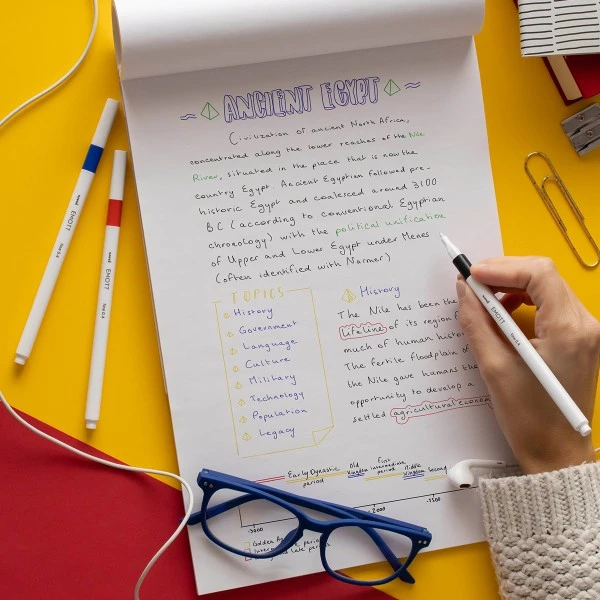 ANCIENT EGYPT
Civilization of ancient North Africa,
concentrated along the lower reaches of the Nile
River, situated in the place that is now the
country Egypt. Ancient Egyptian followed pre-
historic Egypt and coalesced around 3100
BC (according to conventional Egyptian
chronology) with the political unification
of Upper and Lower Egypt under Menes
(often identified with Narmer)
TOPICS
History
Government
Language
Culture
Military
Technology
Population
Legacy
History
The Nile has been the
lifeline of its region f
much of human histor
The fertile floodplain of
the Nile gave humans the
opportunity to develop a
settled agricultural econom
Early Dynastic period
Old Kingdom
First intermediate period
Middle Kingdom
Second
-3000
-2000
-1500
Golden A
period
Late period
uni EMOTT
fine 0.4
uni EMOTT
fine 0.4
EMOTT